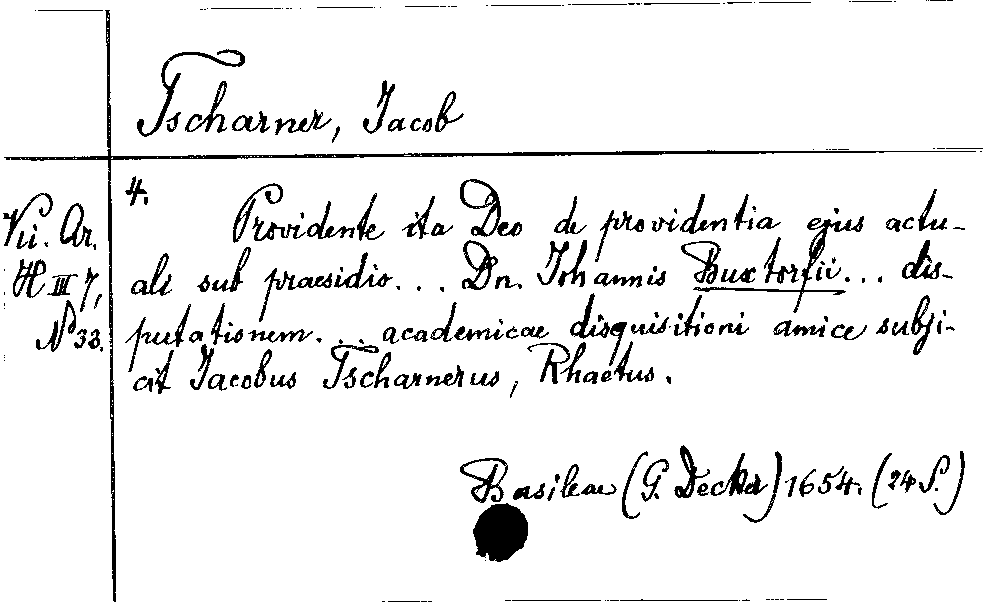 Tscharner, Jacob
4.
Providente ita Deo de providentia ejus actu-
ali sub praesidio... Dn. Johannis Buxtorfii... dis-
putationem... academicae disquisitioni amice subji-
cit Jacobus Tscharnerus, Rhaetus.
Basileae (G. Decker) 1654. (24 S.)
Ar.
H III 7,
No 33.